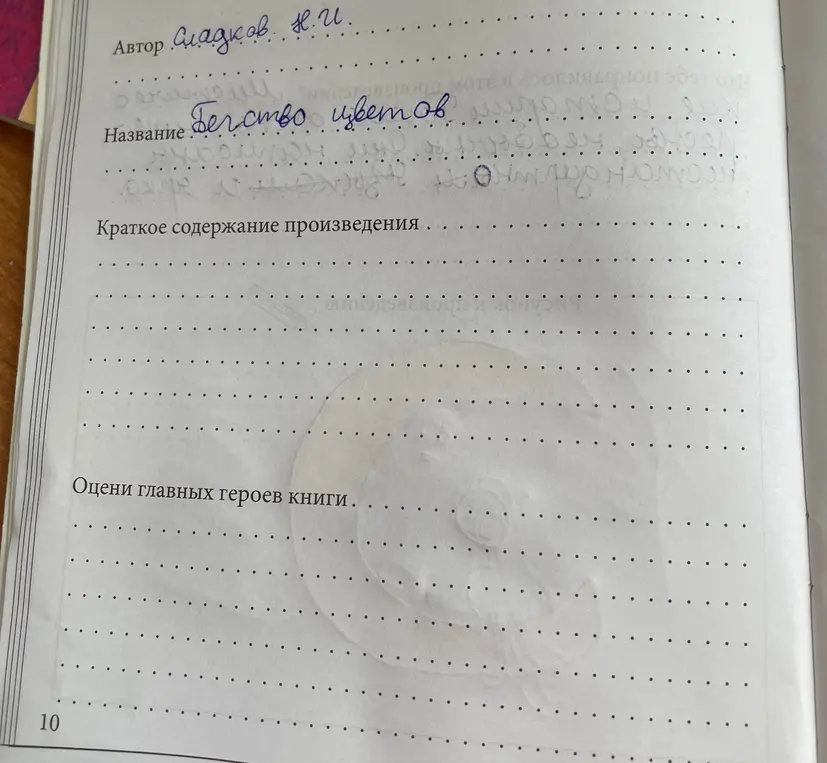 Автор Сладков Н.И.
Название Бегство цветов
Краткое содержание произведения
Оцени главных героев книги
10